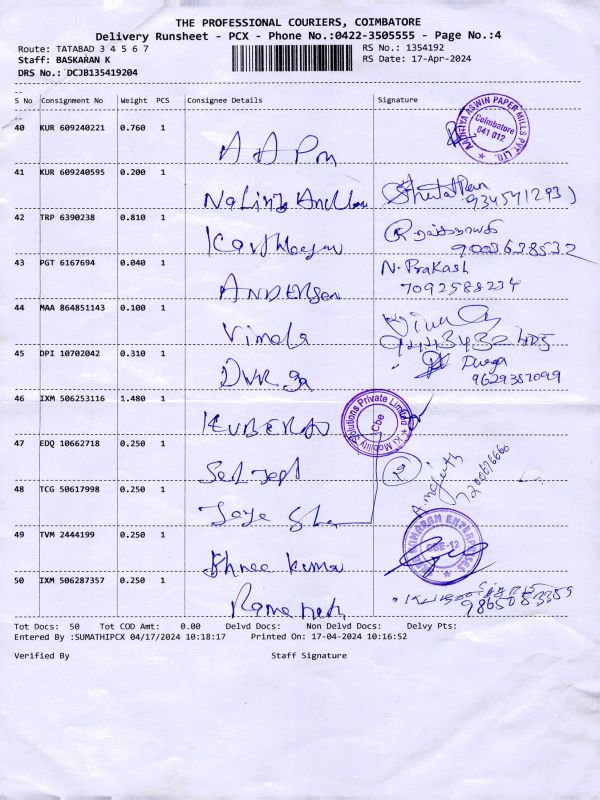 THE PROFESSIONAL COURIERS, COIMBATORE
Delivery Runsheet - PCX - Phone No.:0422-3505555 - Page No.:4
Route: TATABAD 3 4 5 6 7
RS No.: 1354192
Staff: BASKARAN K
RS Date: 17-Apr-2024
DRS No.: DCJB135419204
S No Consignment No Weight PCS Consignee Details Signature
40 KUR 609240221 0.760 1
A A Pm
AADHIYA ASWIN PAPER MILLS PVT. LTD.
Coimbatore
641 012
41 KUR 609240595 0.200 1
9345412931
42 TRP 6390238 0.810 1
9003638532
43 PGT 6167694 0.040 1
ANDERSen
N. Prakash
7092588234
44 MAA 864851143 0.100 1
Vimala
45 DPI 10702042 0.310 1
Durga
Durga
9629387099
46 IXM 506253116 1.480 1
KI Mobility Solutions Private Limited
Cbe
47 EDQ 10662718 0.250 1
48 TCG 50617998 0.250 1
49 TVM 2444199 0.250 1
Shree Kumar
ENTERPRISES
CBE-12
50 IXM 506287357 0.250 1
Ramanath
Tot Docs: 50 Tot COD Amt: 0.00 Delvd Docs: Non Delvd Docs: Delvy Pts:
Entered By :SUMATHIPCX 04/17/2024 10:18:17 Printed On: 17-04-2024 10:16:52
Verified By Staff Signature